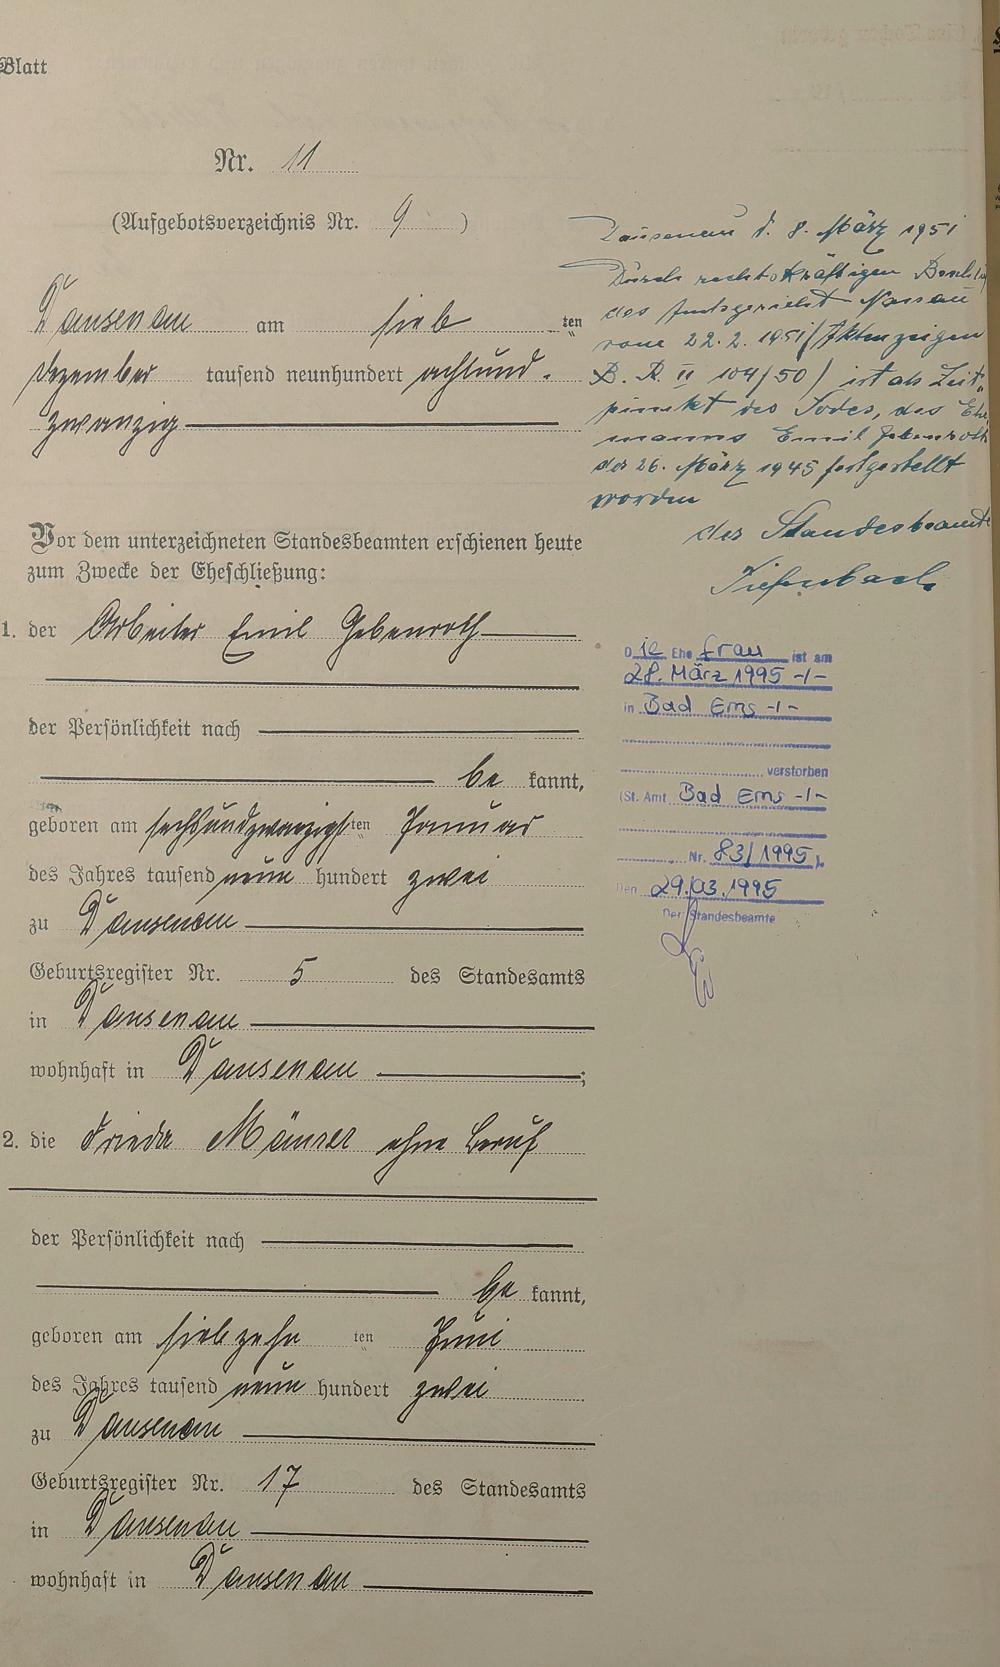 Blatt
Nr. 11
(Aufgebotsverzeichnis Nr. 9 )
Dausenau am sieb ten
Dezember tausend neunhundert achtund-
zwanzig
Vor dem unterzeichneten Standesbeamten erschienen heute
zum Zwecke der Eheschließung:
1. der Arbeiter Emil Gebenroth
der Persönlichkeit nach
be kannt,
geboren am sechsundzwanzigsten Januar
des Jahres tausend neun hundert zwei
zu Dausenau
Geburtsregister Nr. 5 des Standesamts
in Dausenau
wohnhaft in Dausenau ;
2. die Frieda Mäurer ohne Beruf
der Persönlichkeit nach
be kannt,
geboren am siebzehn ten Juni
des Jahres tausend neun hundert zwei
zu Dausenau
Geburtsregister Nr. 17 des Standesamts
in Dausenau
wohnhaft in Dausenau
Dausenau d. 8. März 1951
Durch rechtskräftigen Beschluß
des Amtsgericht Nassau
vom 22.2.1951 (Aktenzeigen
B. R. II 104/50) ist als Zeit-
punkt des Todes, des Ehe
manns Emil Gebenroth
der 26. März 1945 festgestellt
worden
der Standesbeamte
Tiefenbach
Die Ehe frau ist am
28. März 1995 -/-
in Bad Ems -/-
verstorben
(St. Amt Bad Ems -/-
Nr. 83/1995).
Den 29.03.1995
Der Standesbeamte